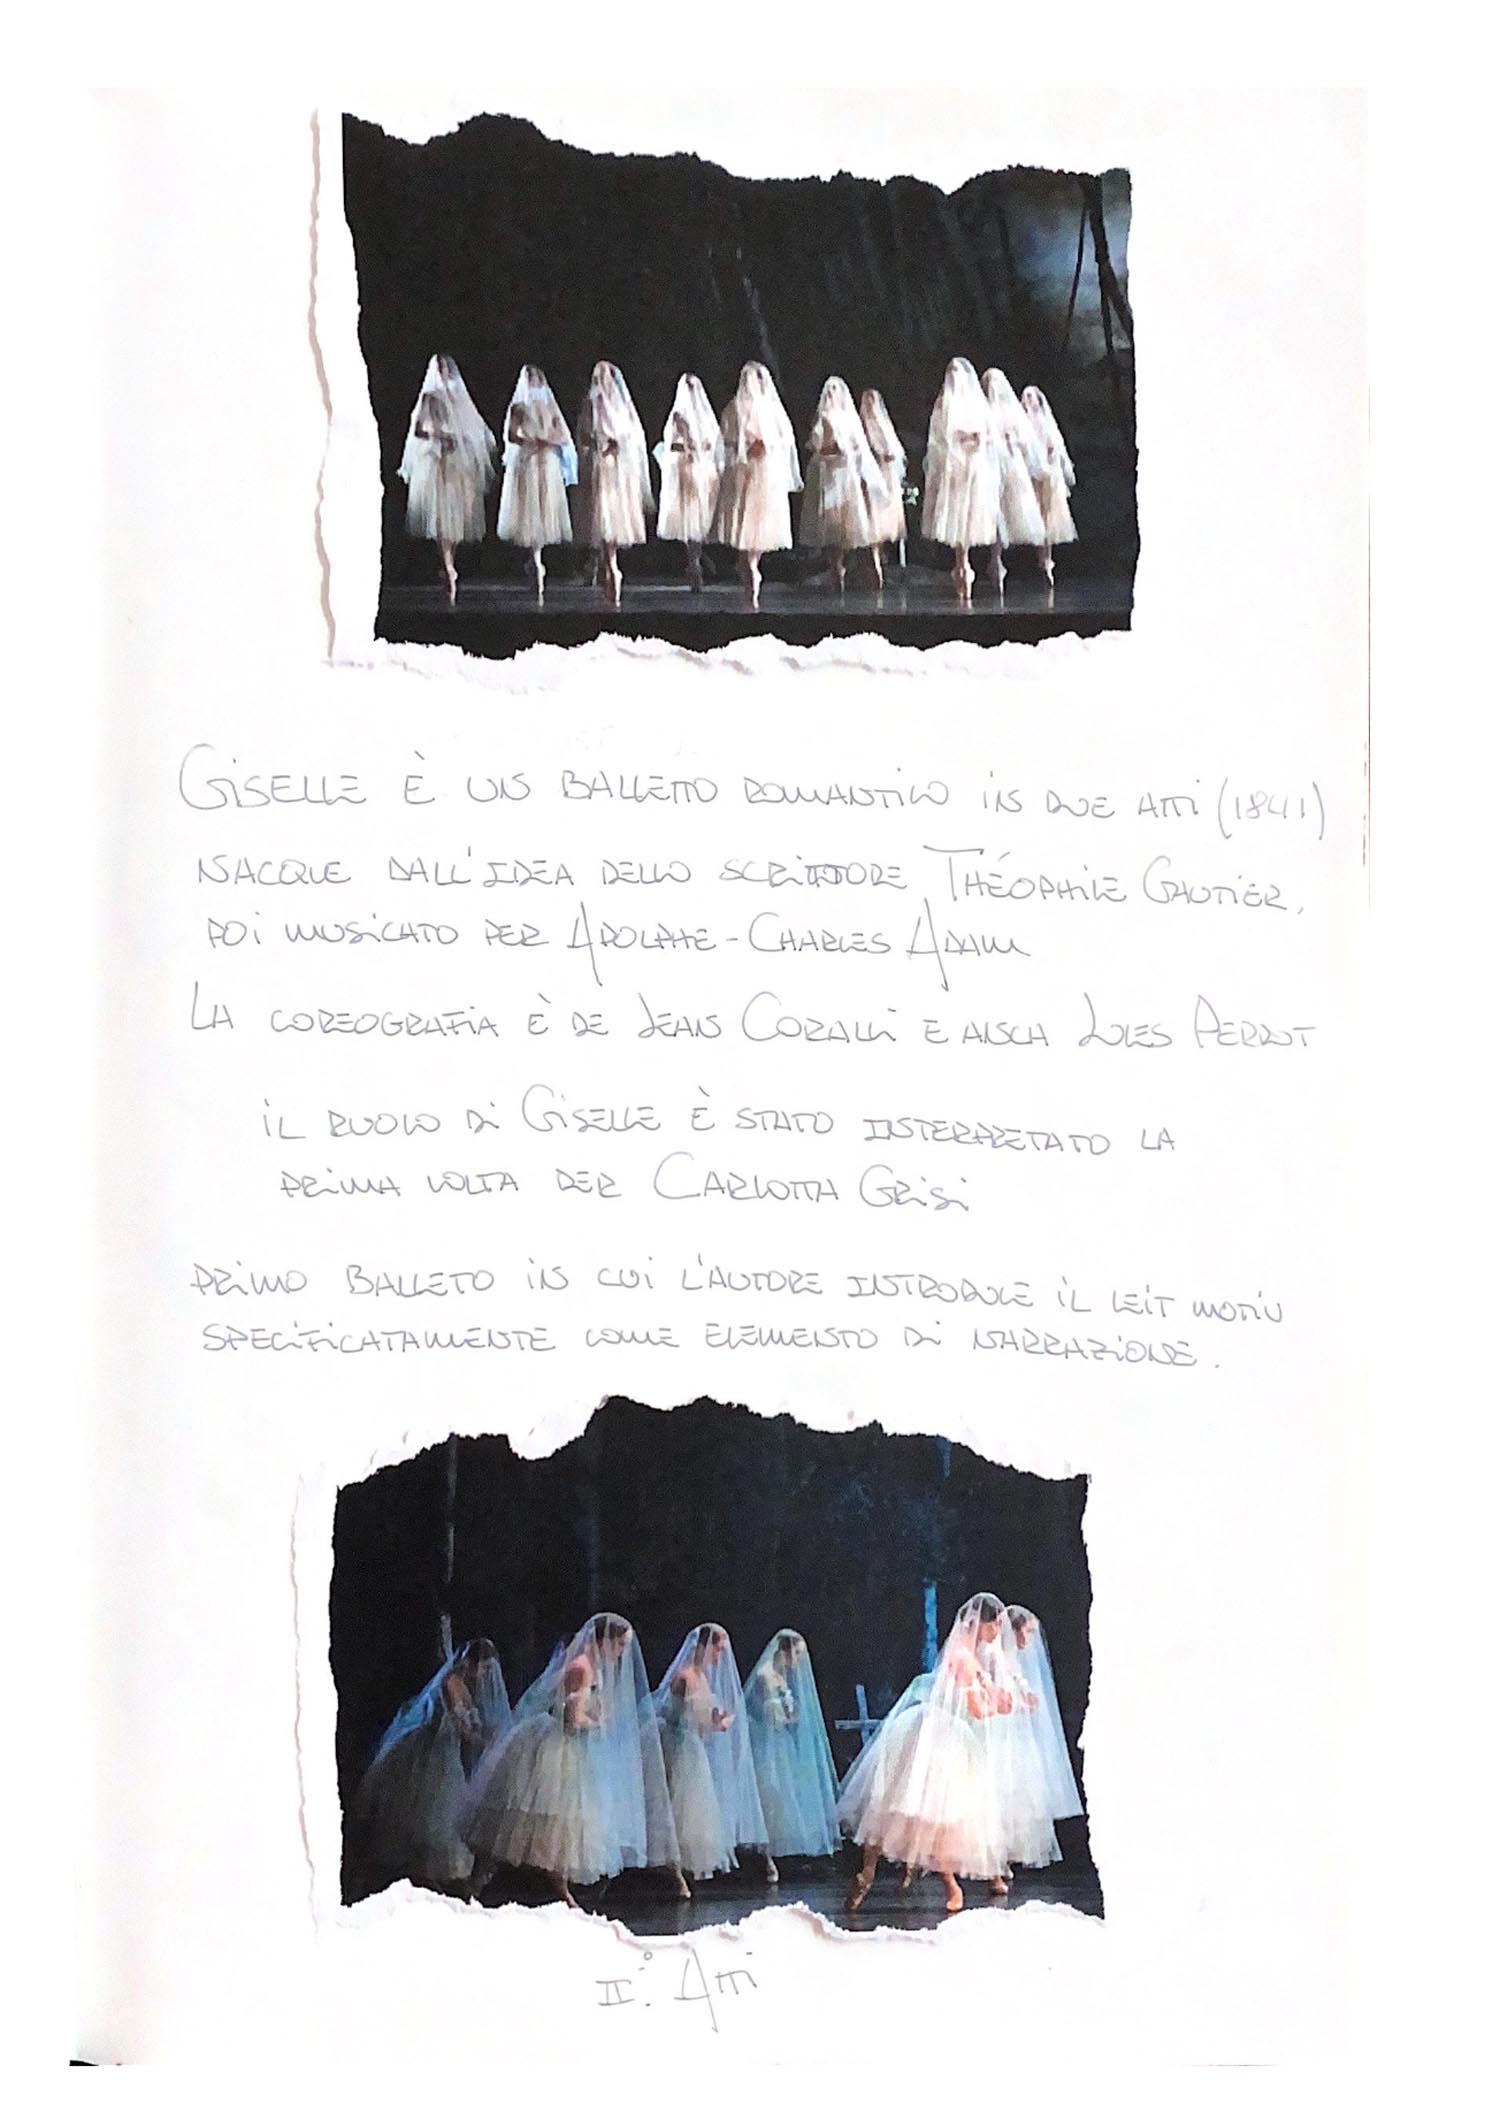 Giselle è un balletto romantico in due atti (1841)
nacque dall'idea dello scrittore Théophile Gautier,
poi musicato per Adolphe-Charles Adam
La coreografia è de Jean Coralli e ancha Jules Perrot
il ruolo di Giselle è stato interpretato la
prima volta per Carlotta Grisi
primo balleto in cui l'autore introduce il leit motiv
specificatamente come elemento di narrazione.
II°. Atti